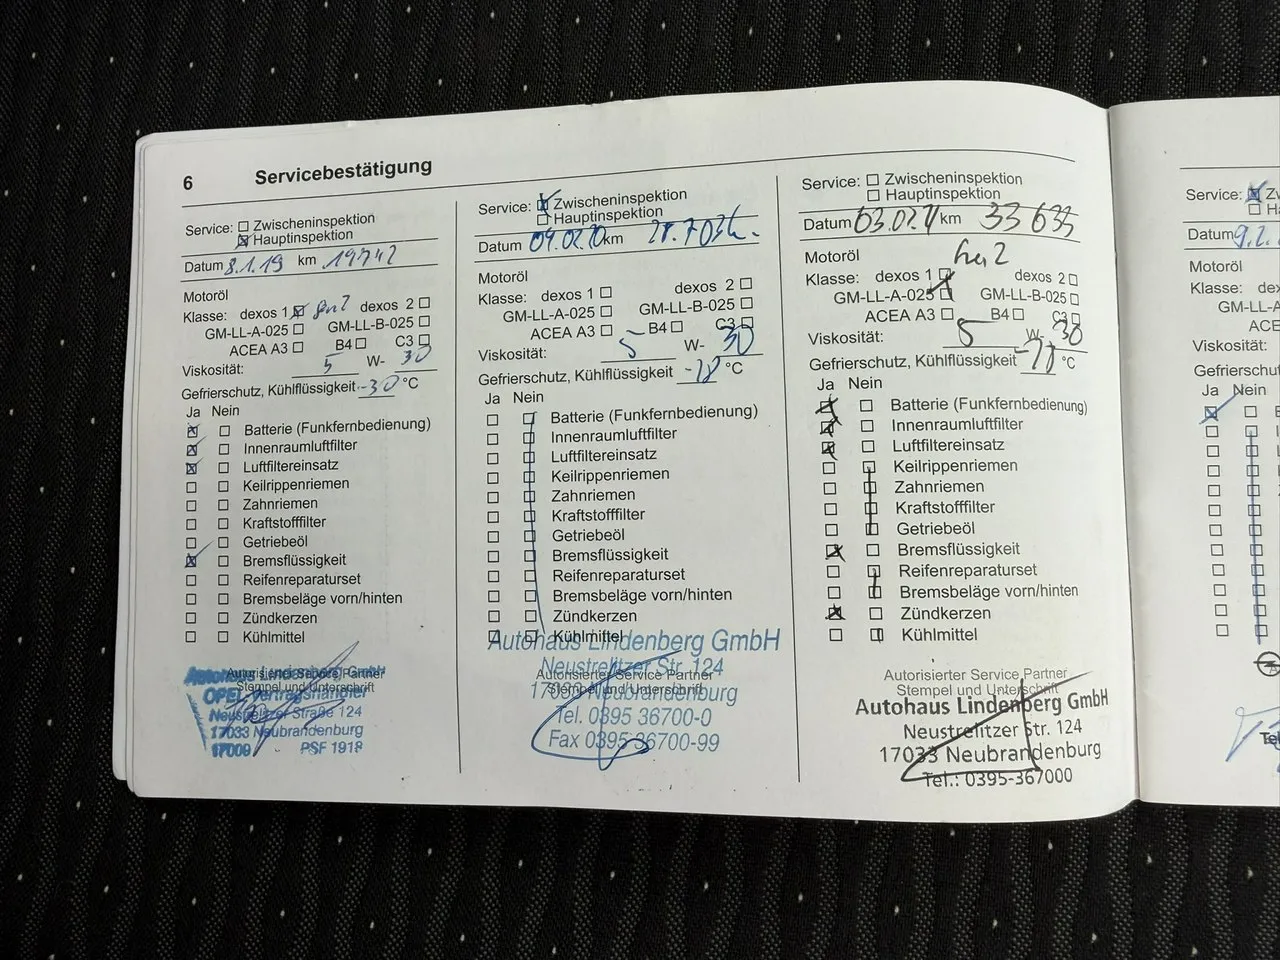 6 Servicebestätigung
Service: Zwischeninspektion
Hauptinspektion
Datum 8.1.19 km 19742
Motoröl
Klasse: dexos 1 Gen2 dexos 2
GM-LL-A-025 GM-LL-B-025
ACEA A3 B4 C3
Viskosität: 5 W- 30
Gefrierschutz, Kühlflüssigkeit -30 °C
Ja Nein
Batterie (Funkfernbedienung)
Innenraumluftfilter
Luftfiltereinsatz
Keilrippenriemen
Zahnriemen
Kraftstofffilter
Getriebeöl
Bremsflüssigkeit
Reifenreparaturset
Bremsbeläge vorn/hinten
Zündkerzen
Kühlmittel
Autorisierter Service Partner
Stempel und Unterschrift
Autohaus Lindenberg GmbH
OPEL Vertragshändler
Neustrelitzer Straße 124
17033 Neubrandenburg
17009 PSF 1918
Service: Zwischeninspektion
Hauptinspektion
Datum 04.02.20 km
Motoröl
Klasse: dexos 1 dexos 2
GM-LL-A-025 GM-LL-B-025
ACEA A3 B4 C3
Viskosität: 5 W- 30
Gefrierschutz, Kühlflüssigkeit -28 °C
Ja Nein
Batterie (Funkfernbedienung)
Innenraumluftfilter
Luftfiltereinsatz
Keilrippenriemen
Zahnriemen
Kraftstofffilter
Getriebeöl
Bremsflüssigkeit
Reifenreparaturset
Bremsbeläge vorn/hinten
Zündkerzen
Kühlmittel
Autohaus Lindenberg GmbH
Neustrelitzer Str. 124
Autorisierter Service Partner
Stempel und Unterschrift
17033 Neubrandenburg
Tel. 0395 36700-0
Fax 0395 36700-99
Service: Zwischeninspektion
Hauptinspektion
Datum 03.02.21 km 33635
Motoröl Gen2
Klasse: dexos 1 dexos 2
GM-LL-A-025 GM-LL-B-025
ACEA A3 B4 C3
Viskosität: 5 W- 30
Gefrierschutz, Kühlflüssigkeit °C
Ja Nein
Batterie (Funkfernbedienung)
Innenraumluftfilter
Luftfiltereinsatz
Keilrippenriemen
Zahnriemen
Kraftstofffilter
Getriebeöl
Bremsflüssigkeit
Reifenreparaturset
Bremsbeläge vorn/hinten
Zündkerzen
Kühlmittel
Autorisierter Service Partner
Stempel und Unterschrift
Autohaus Lindenberg GmbH
Neustrelitzer Str. 124
17033 Neubrandenburg
Tel.: 0395-367000
Service: Zw
Ha
Datum 9.2.
Motoröl
Klasse:
Viskosität:
Gefrierschutz
Ja Nein